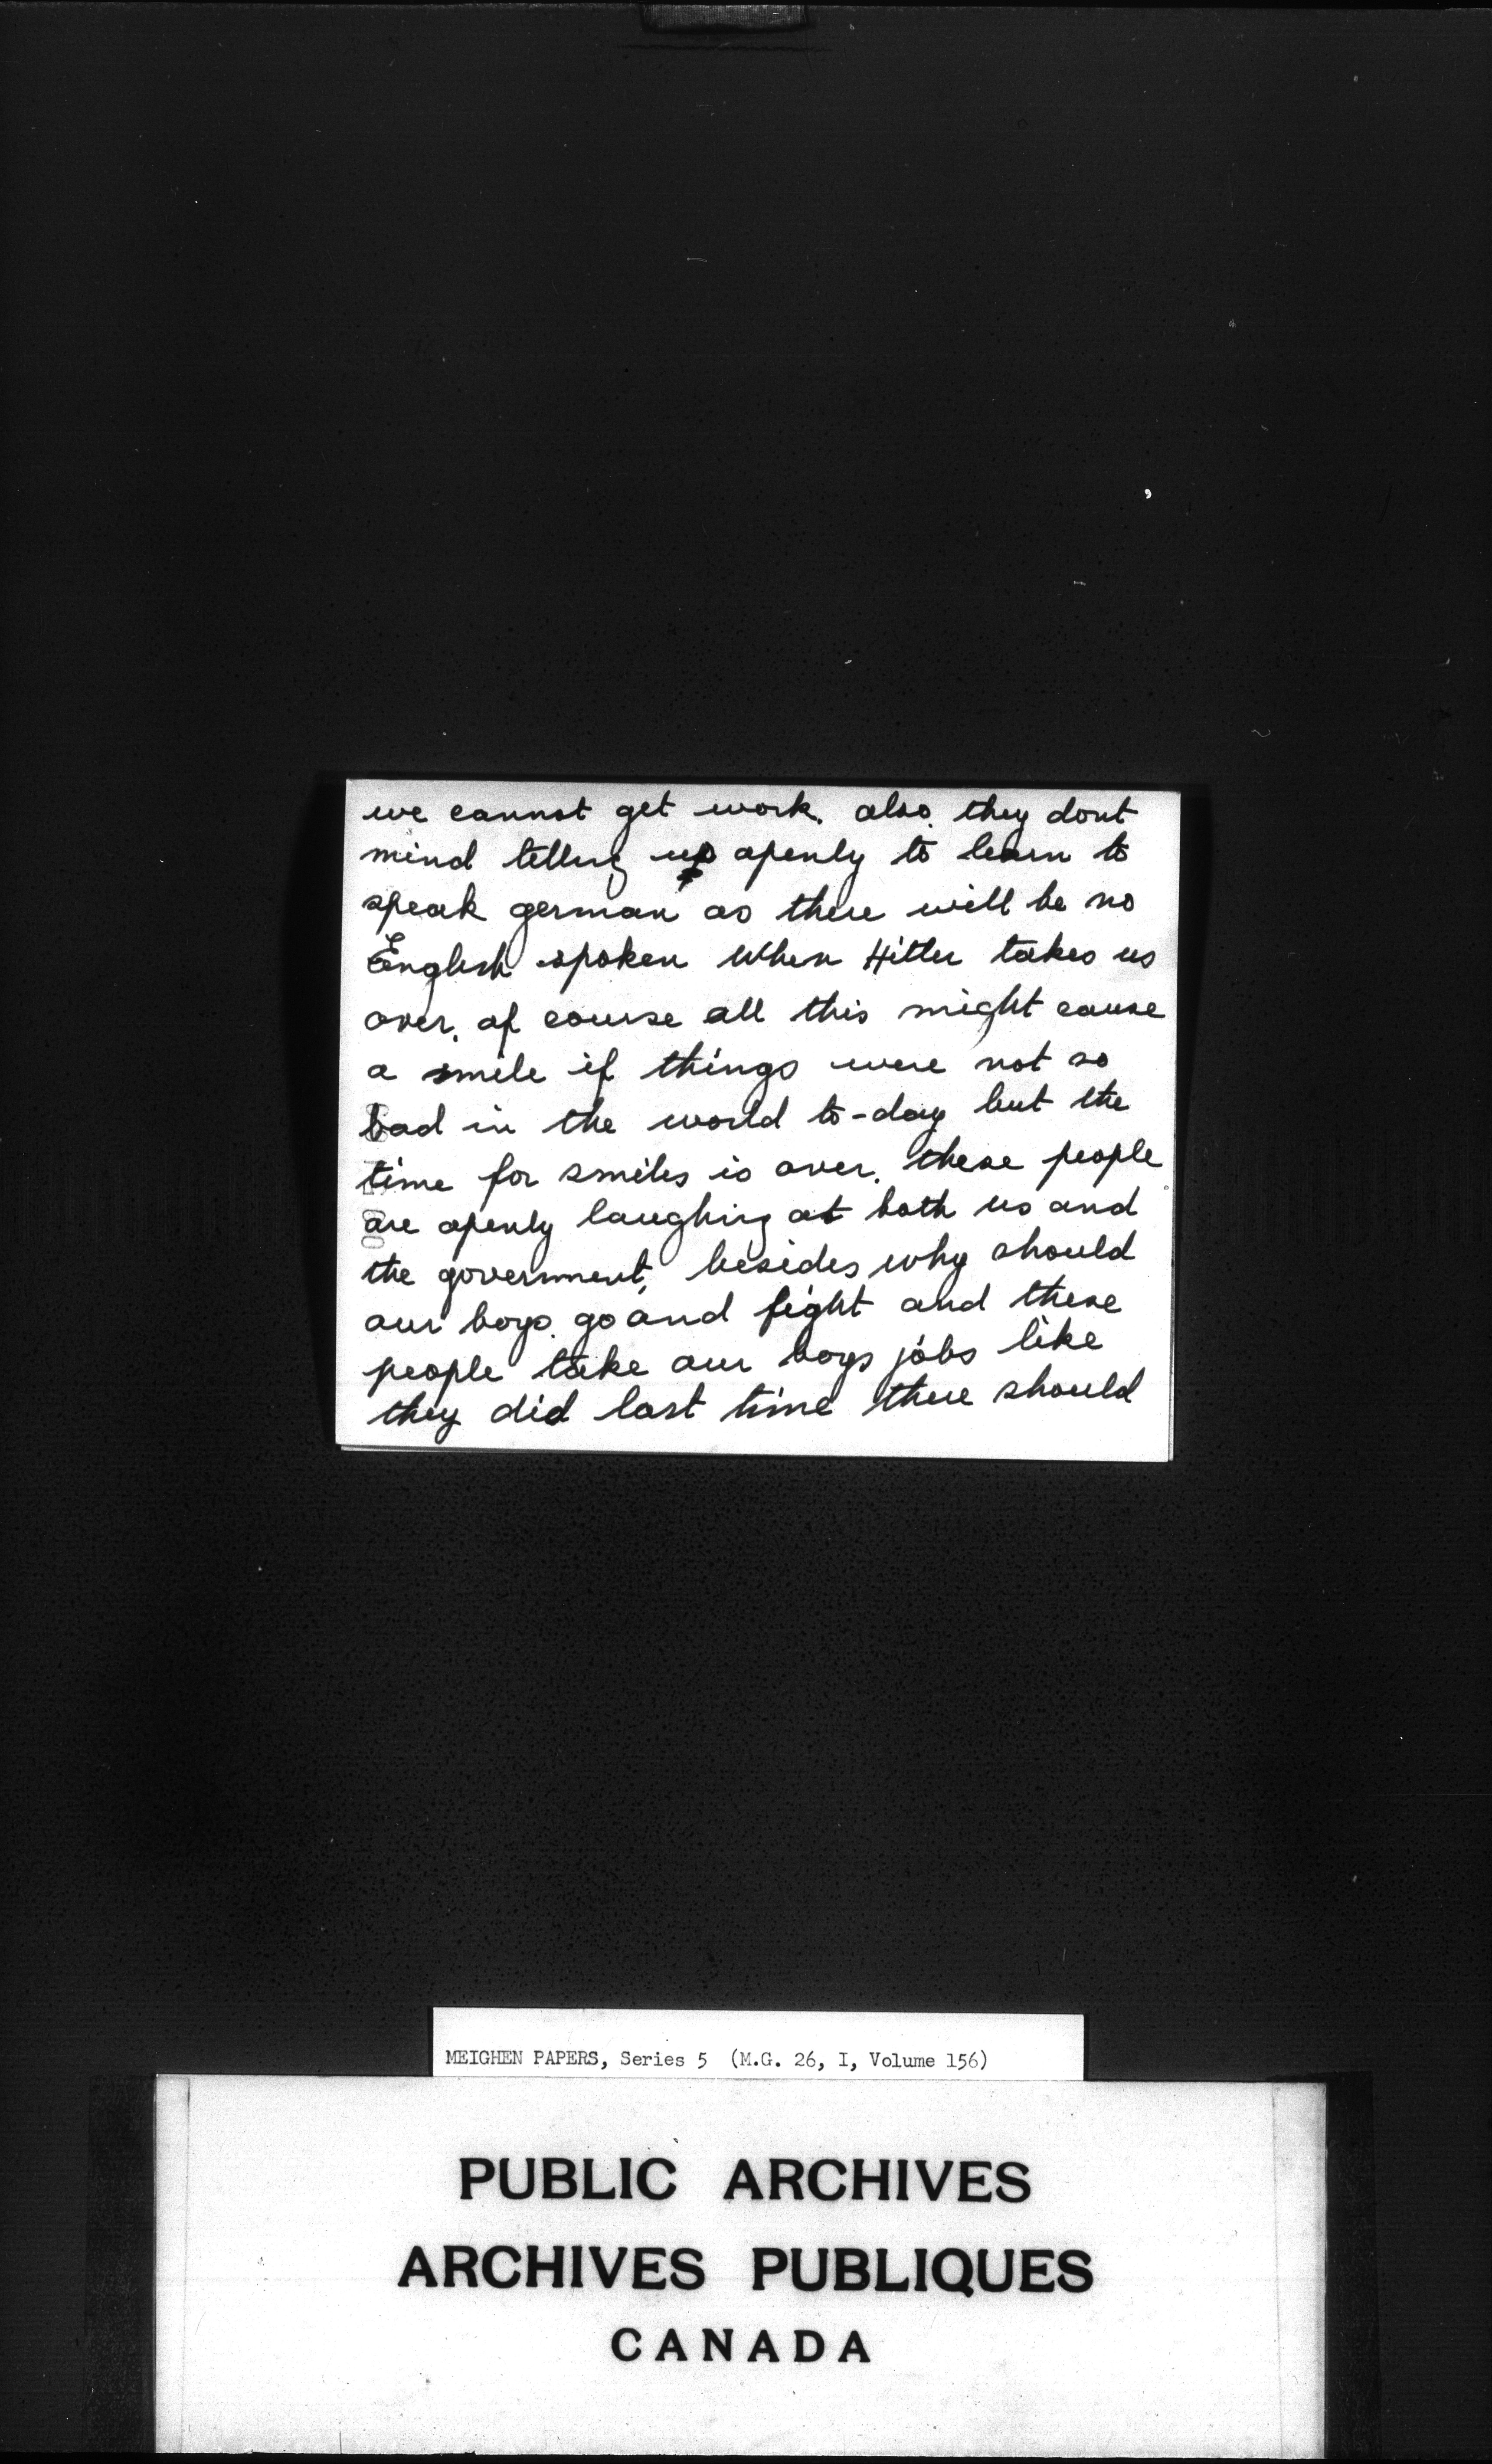 we cannot get work. also. they dont
mind telling us openly to learn to
speak german as there will be no
English spoken when Hitler takes us
over. of course all this might cause
a smile if things were not so
bad in the world to-day but the
time for smiles is over. these people
are openly laughing at both us and
the government, besides why should
our boys. go and fight and these
people take our boys jobs like
they did last time there should
MEIGHEN PAPERS, Series 5 (M.G. 26, I, Volume 156)
PUBLIC ARCHIVES
ARCHIVES PUBLIQUES
CANADA